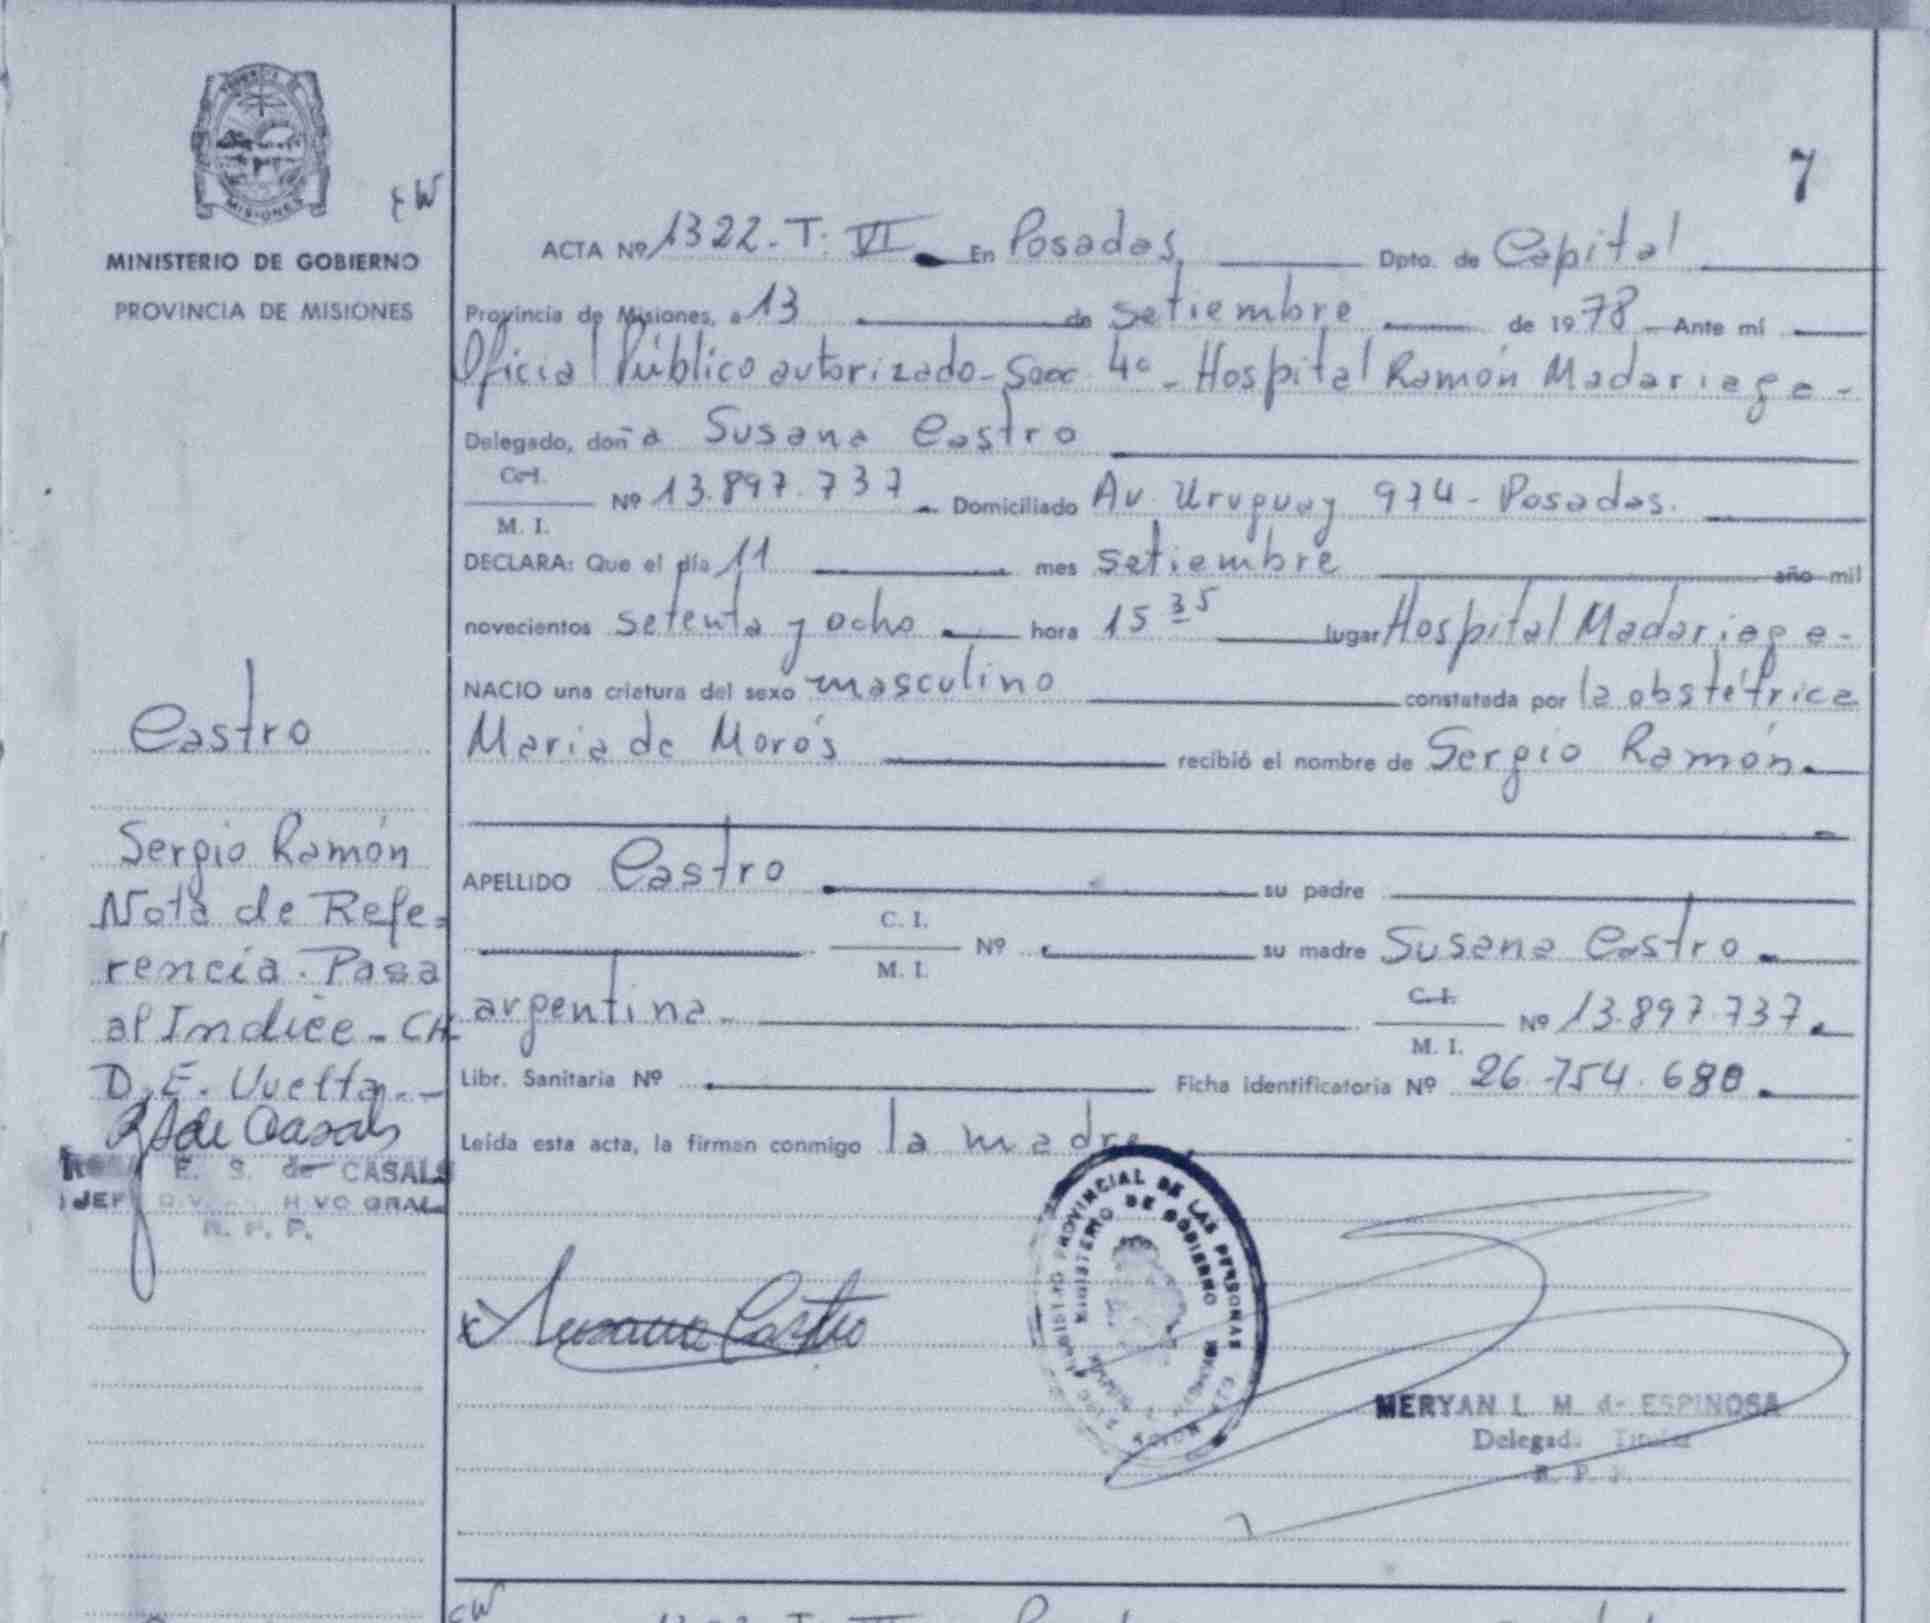 MISIONES
MINISTERIO DE GOBIERNO
PROVINCIA DE MISIONES
7
ACTA Nº 1322-T: VI En Posadas, Dpto. de Capital
Provincia de Misiones, a 13 de setiembre de 1978 Ante mí
Oficial Público autorizado- 4º - Hospital Ramón Madariaga -
Delegado, doña Susana Castro
C.I.
M. I.
Nº 13.897.737 Domiciliado Av. Uruguay 974 - Posadas.
DECLARA: Que el día 11 mes setiembre año mil
novecientos setenta y ocho hora 15 35 lugar Hospital Madariaga -
NACIO una criatura del sexo masculino constatada por la obstétrica
Maria de Morós recibió el nombre de Sergio Ramón.
APELLIDO Castro su padre
C. I.
M. I.
Nº su madre Susana Castro
argentina.
C. I.
M. I.
Nº 13.897.737
Libr. Sanitaria Nº Ficha identificatoria Nº 26.754.680
Leída esta acta, la firman conmigo la madre
Castro
Sergio Ramón
Nota de Refe-
rencia. Pasa
al Indice - CH
D. E. Vuelta. -
de Casals
E. S. de CASALS
R. P. P.
Susana Castro
PROVINCIAL DE LAS PERSONAS
MINISTERIO DE GOBIERNO
MERYAN I. M. de ESPINOSA
Delegada Titular